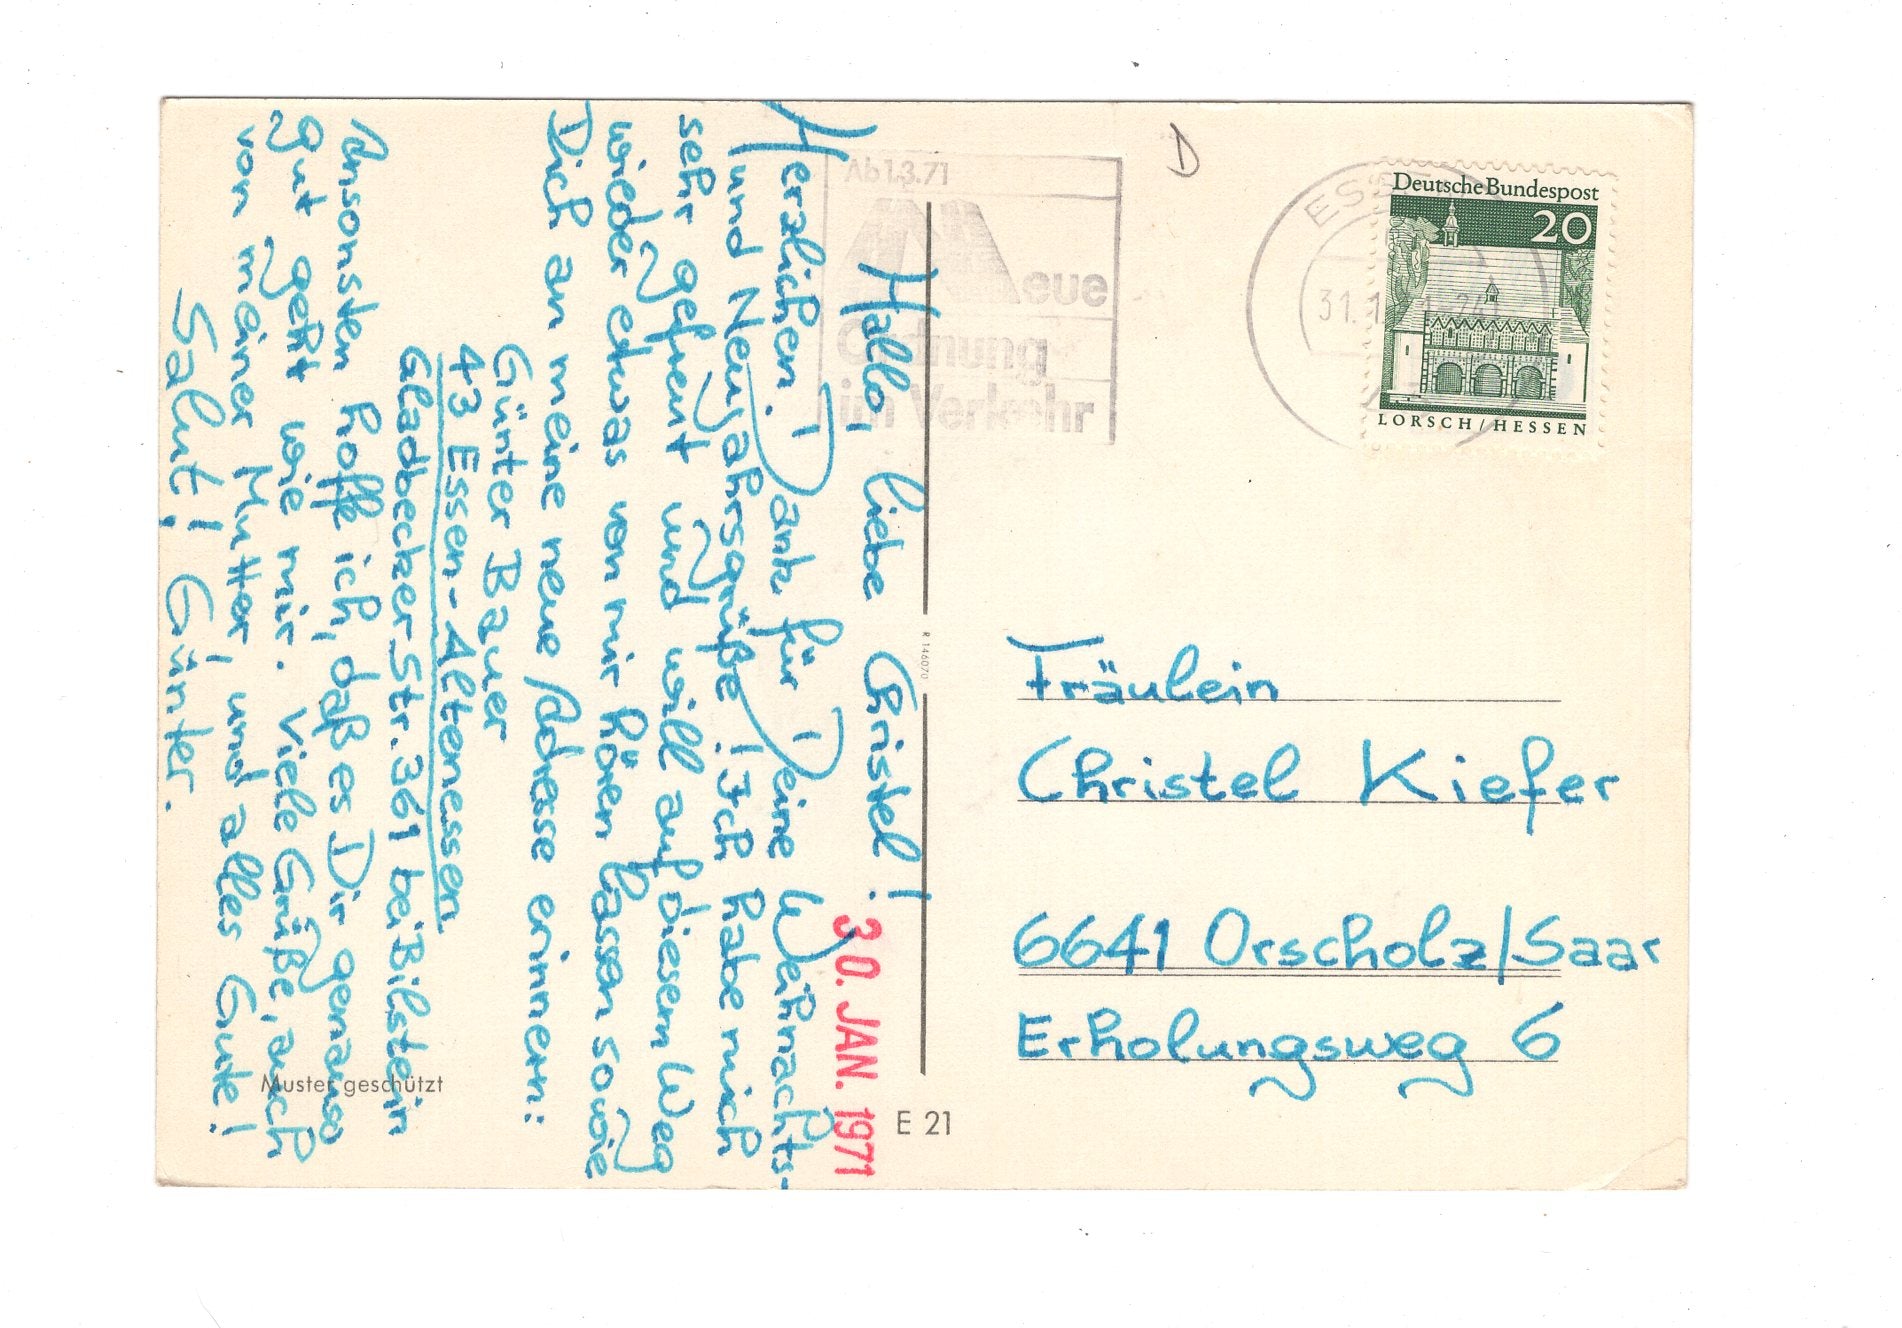 Hallo, liebe Christel!
Herzlichen Dank für Deine Weihnachts-
und Neujahrsgrüße! Ich habe mich
sehr gefreut und will auf diesem Weg
wieder etwas von mir hören lassen sowie
Dich an meine neue Adresse erinnern:
Günter Bauer
43 Essen-Altenessen
Gladbecker Str. 361 bei Bilstein
Ansonsten hoffe ich, daß es Dir genauso
gut geht wie mir. Viele Grüße, auch
von meiner Mutter, und alles Gute!
Salut! Günter.
30. JAN. 1971
Muster geschützt
E 21
R 146070
Ab 1.3.71
Neue
Ordnung
im Verkehr
D
ESSEN
31.1.
Deutsche Bundespost
20
LORSCH / HESSEN
Fräulein
Christel Kiefer
6641 Orscholz/Saar
Erholungsweg 6